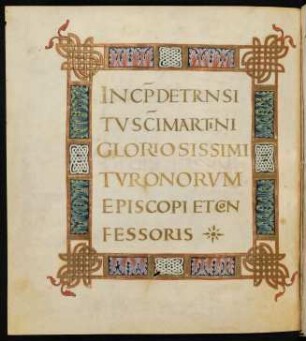 INCP̄DETRNSI
TUSC̄IMARTINI
GLORIOSISSIMI
TVRONORVM
EPISCOPIETCON
FESSORIS